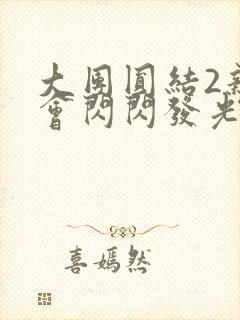 大團圓結2新
會閃閃發光
喜嫣然